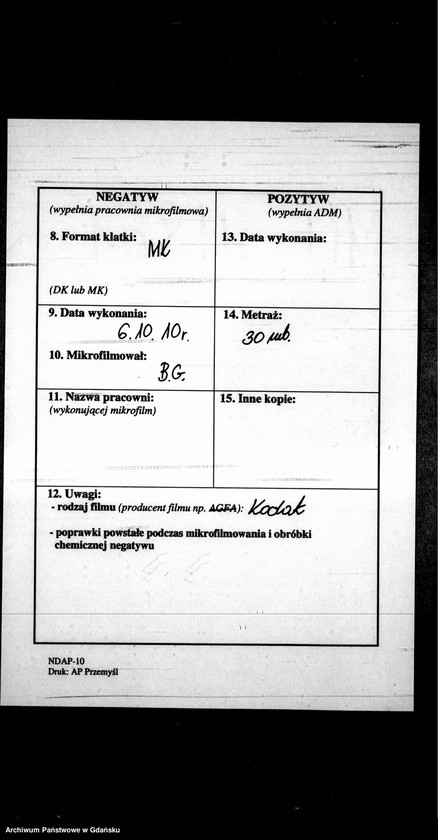 NEGATYW
(wypełnia pracownia mikrofilmowa)
8. Format klatki:
MK
(DK lub MK)
9. Data wykonania:
6.10.10r.
10. Mikrofilmował:
B.G.
11. Nazwa pracowni:
(wykonującej mikrofilm)
POZYTYW
(wypełnia ADM)
13. Data wykonania:
14. Metraż:
30 mb.
15. Inne kopie:
12. Uwagi:
- rodzaj filmu (producent filmu np. AGFA): Kodak
- poprawki powstałe podczas mikrofilmowania i obróbki
chemicznej negatywu
NDAP-10
Druk: AP Przemyśl
Archiwum Państwowe w Gdańsku